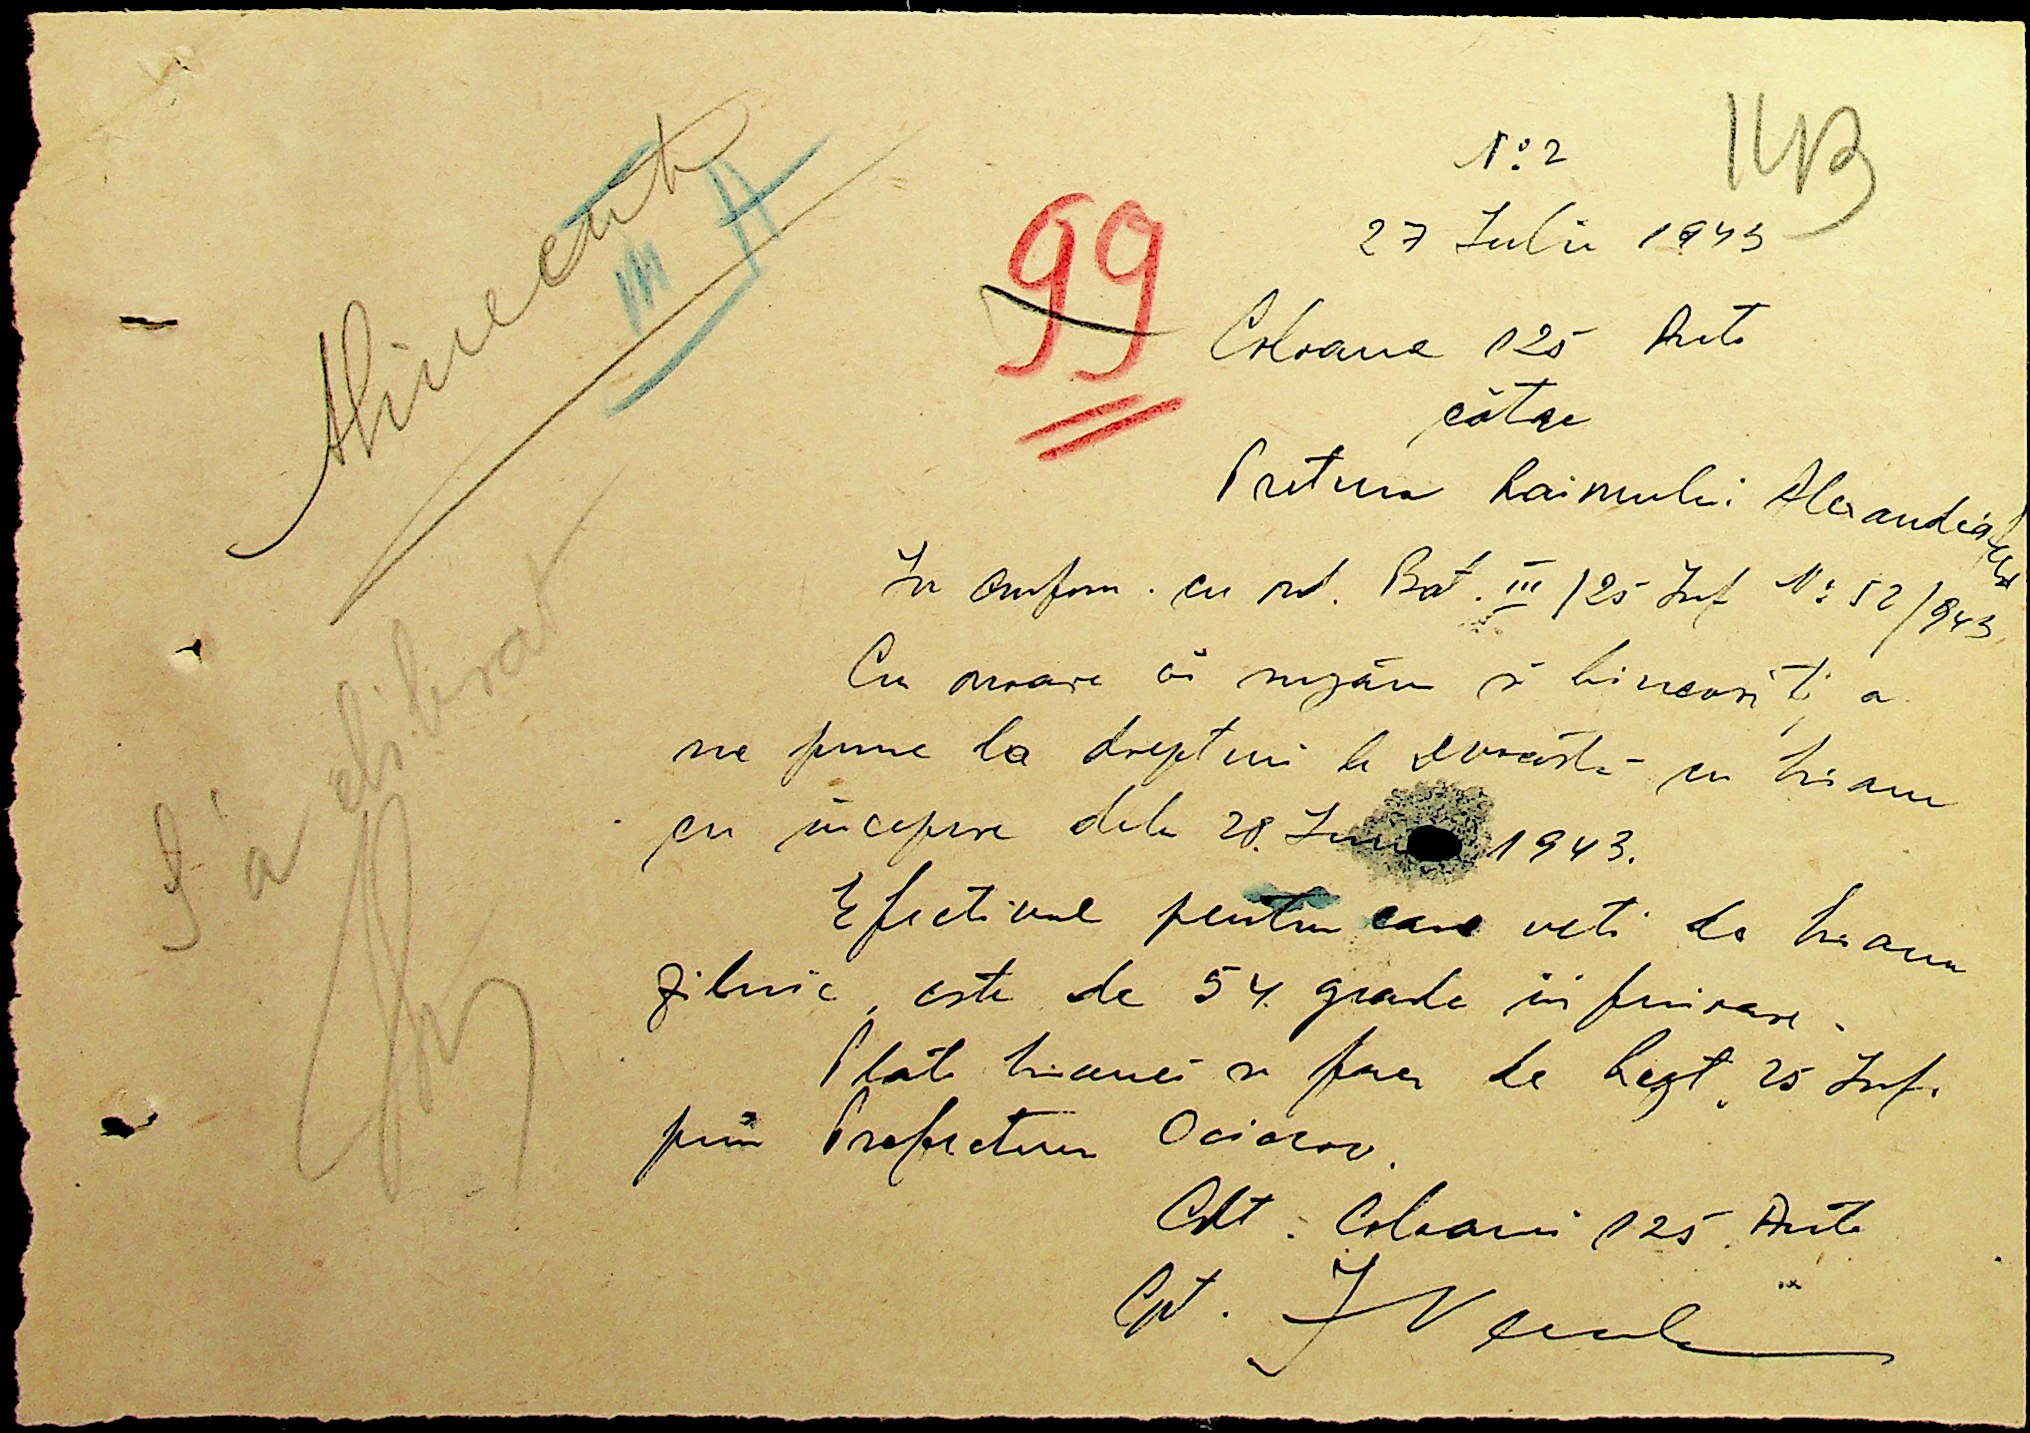 No. 2
27 Iulie 1943
99
Coloana 125 Auto
către
Pretura Raionului Alexandrovca
În conform. cu ord. Bat. III/25 Inf No. 52/943
Cu onoare vă rugăm să binevoiți a
ne pune la drepturi la această cu hrana
cu începere dela 28. 1943.
Efectivul pentru care veti da hrana
zilnic, este de 54. grade inferioare.
Plata hranei se face de Regt. 25 Inf.
prin Prefectura Ociacov.
Cdt. Coloanei 125 Auto
Cpt.
Alimente
III A
S'a eliberat